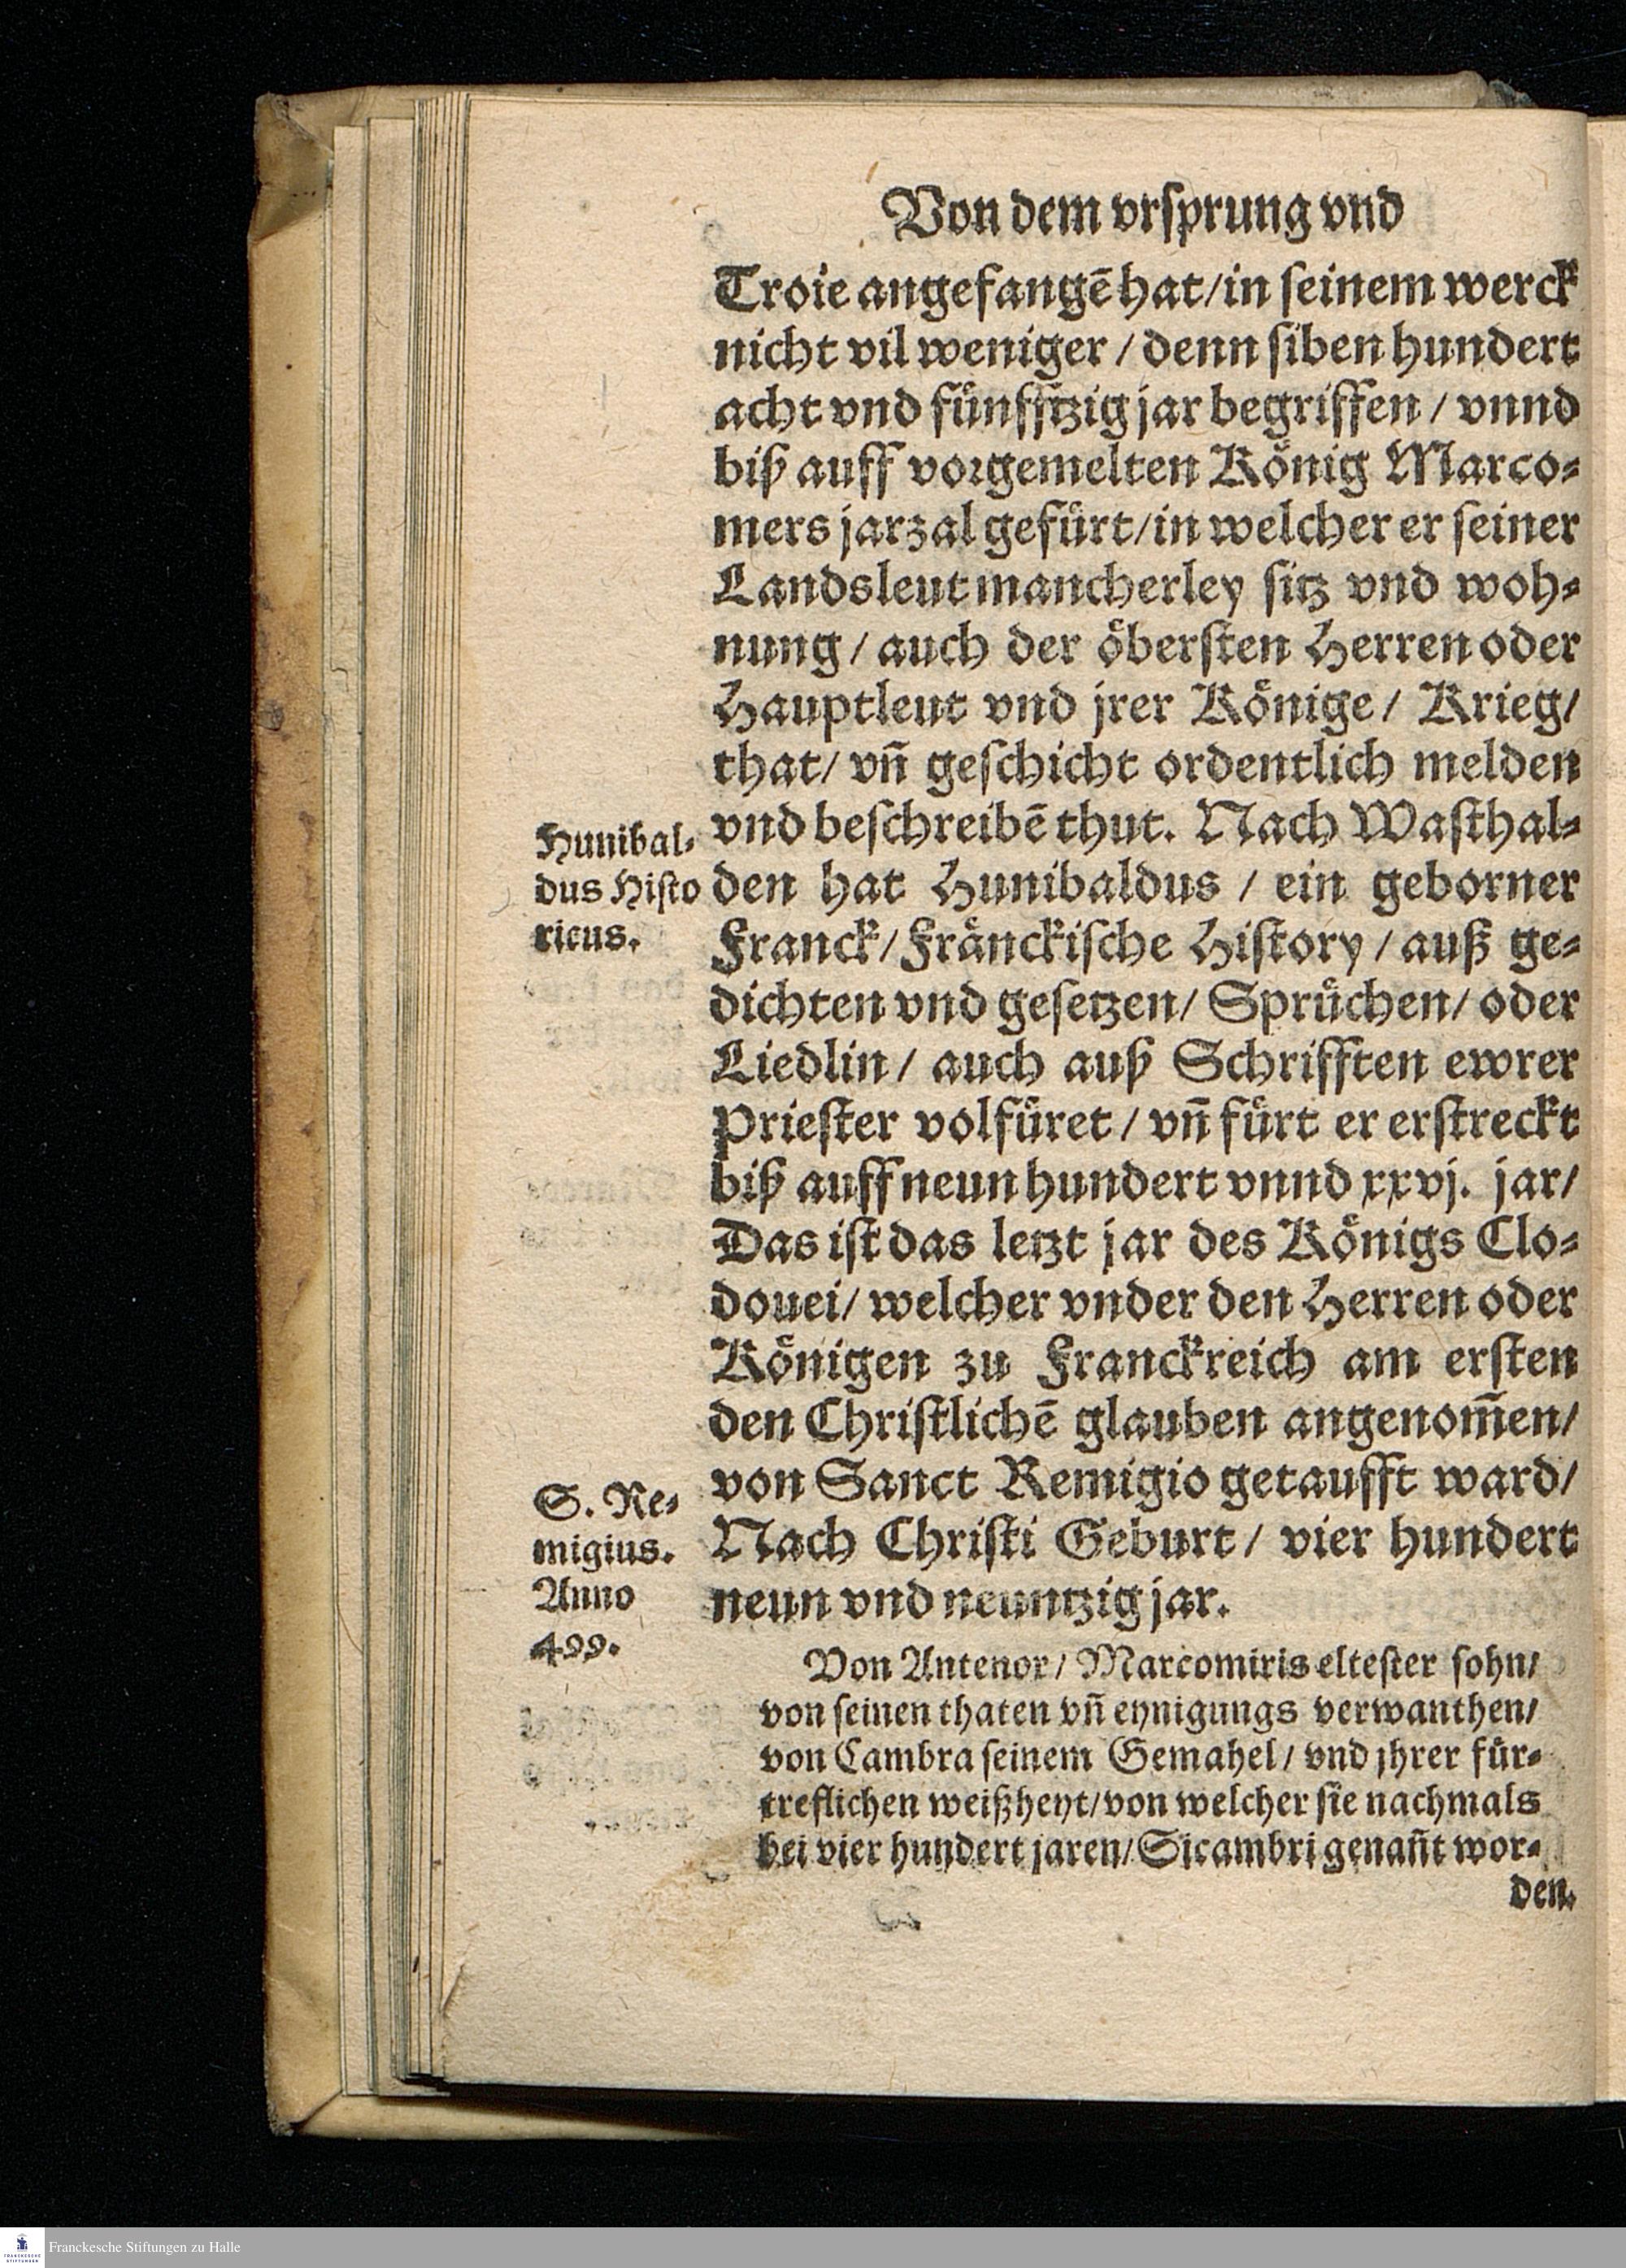 Von dem vrſprung vnd
Troie angefangē hat/in ſeinem werck
nicht vil weniger / denn ſiben hundert
acht vnd fuͤnfftzig jar begriffen / vnnd
biß auff vorgemelten Koͤnig Marco⸗
mers jarzal gefuͤrt/in welcher er ſeiner
Landsleut mancherley ſitz vnd woh⸗
nung / auch der oͤberſten Herren oder
Hauptleut vnd jrer Koͤnige / Krieg/
that/ vñ geſchicht ordentlich melden
vnd beſchreibē thut. Nach Waſthal⸗
den hat Hunibaldus / ein geborner
Franck/Fraͤnckiſche Hiſtory / auß ge⸗
dichten vnd geſetzen/ Spruͤchen/ oder
Liedlin / auch auß Schrifften ewrer
Prieſter volfuͤret / vñ fuͤrt er erſtreckt
biß auff neun hundert vnnd xxvj. jar/
Das iſt das letzt jar des Koͤnigs Clo⸗
douei/ welcher vnder den Herren oder
Koͤnigen zu Franckreich am erſten
den Chriſtlichē glauben angenom̄en/
von Sanct Remigio getaufft ward/
Nach Chriſti Geburt / vier hundert
neun vnd neuntzig jar.
Hunibal⸗
dus Hiſto
ricus.
S. Re⸗
migius.
Anno
499.
Von Antenor/ Marcomiris elteſter ſohn/
von ſeinen thaten vñ eynigungs verwanthen/
von Cambra ſeinem Gemahel/ vnd jhrer fuͤr⸗
treflichen weißheyt/von welcher ſie nachmals
bei vier hundert jaren/Sicambri genañt wor⸗
den.
Franckesche Stiftungen zu Halle